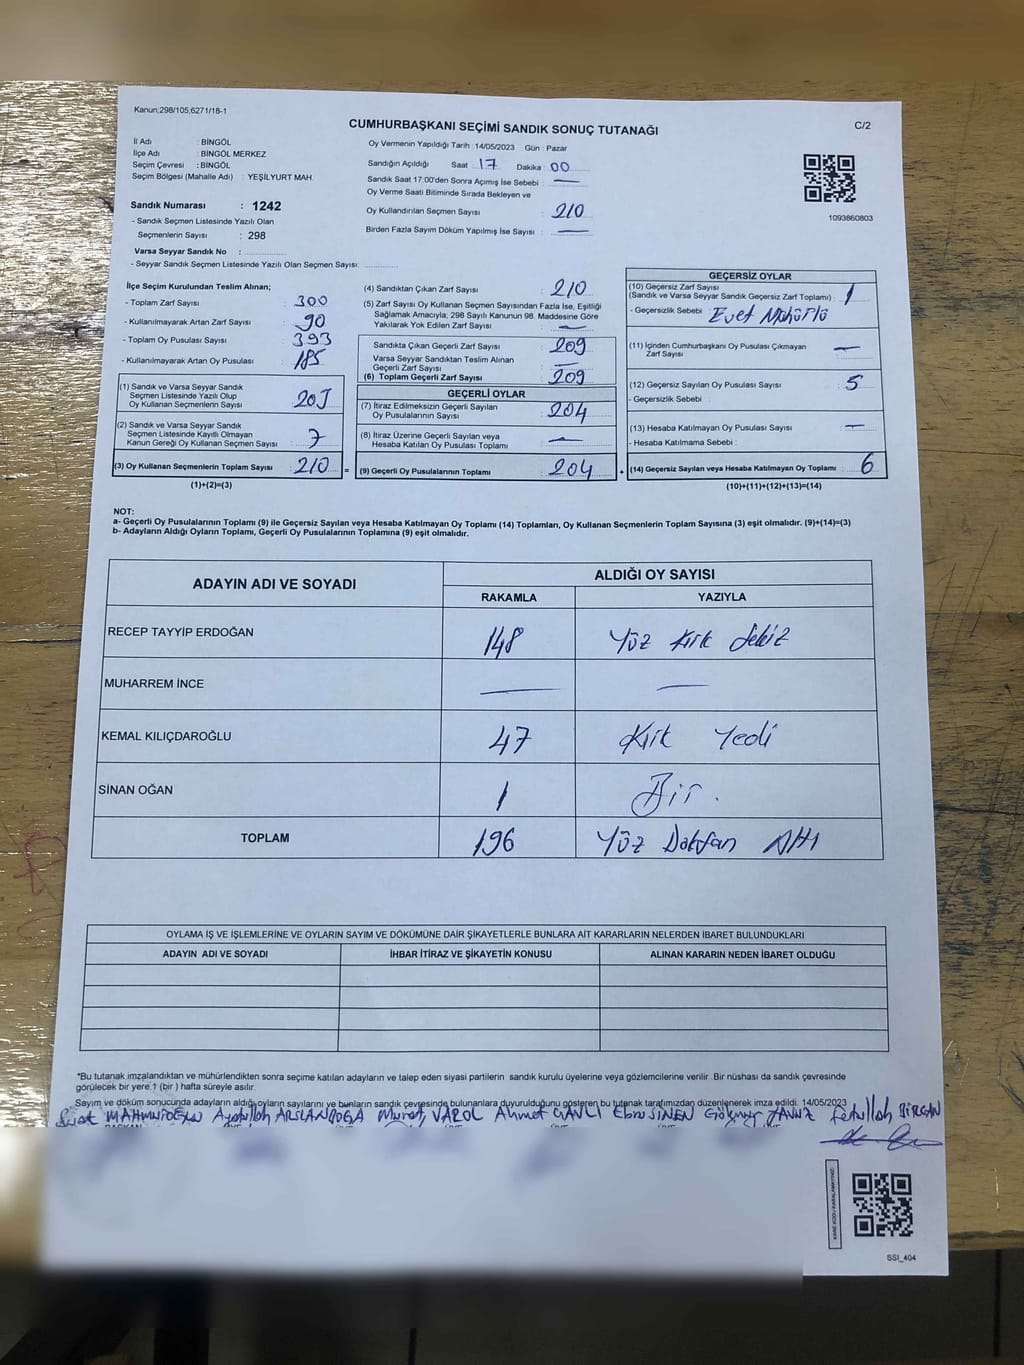 Kanun;298/105;6271/18-1
CUMHURBAŞKANI SEÇİMİ SANDIK SONUÇ TUTANAĞI
C/2
İl Adı : BİNGÖL
İlçe Adı : BİNGÖL MERKEZ
Seçim Çevresi : BİNGÖL
Seçim Bölgesi (Mahalle Adı) : YEŞİLYURT MAH.
Sandık Numarası : 1242
- Sandık Seçmen Listesinde Yazılı Olan
Seçmenlerin Sayısı : 298
Varsa Seyyar Sandık No :
- Seyyar Sandık Seçmen Listesinde Yazılı Olan Seçmen Sayısı:
Oy Vermenin Yapıldığı Tarih : 14/05/2023 Gün : Pazar
Sandığın Açıldığı Saat : 17 Dakika : 00
Sandık Saat 17:00'den Sonra Açımış İse Sebebi : —
Oy Verme Saati Bitiminde Sırada Bekleyen ve
Oy Kullandırılan Seçmen Sayısı : 210
Birden Fazla Sayım Döküm Yapılmış İse Sayısı : —
1093860803
İlçe Seçim Kurulundan Teslim Alınan;
- Toplam Zarf Sayısı : 300
- Kullanılmayarak Artan Zarf Sayısı : 90
- Toplam Oy Pusulası Sayısı : 393
- Kullanılmayarak Artan Oy Pusulası : 185
(1) Sandık ve Varsa Seyyar Sandık
Seçmen Listesinde Yazılı Olup
Oy Kullanan Seçmenlerin Sayısı : 203
(2) Sandık ve Varsa Seyyar Sandık
Seçmen Listesinde Kayıtlı Olmayan
Kanun Gereği Oy Kullanan Seçmen Sayısı : 7
(3) Oy Kullanan Seçmenlerin Toplam Sayısı : 210 =
(1)+(2)=(3)
(4) Sandıktan Çıkan Zarf Sayısı : 210
(5) Zarf Sayısı Oy Kullanan Seçmen Sayısından Fazla İse, Eşitliği
Sağlamak Amacıyla; 298 Sayılı Kanunun 98. Maddesine Göre
Yakılarak Yok Edilen Zarf Sayısı : —
Sandıkta Çıkan Geçerli Zarf Sayısı : 209
Varsa Seyyar Sandıktan Teslim Alınan
Geçerli Zarf Sayısı : —
(6) Toplam Geçerli Zarf Sayısı : 209
GEÇERLİ OYLAR
(7) İtiraz Edilmeksizin Geçerli Sayılan
Oy Pusulalarının Sayısı : 204
(8) İtiraz Üzerine Geçerli Sayılan veya
Hesaba Katılan Oy Pusulası Toplamı : —
(9) Geçerli Oy Pusulalarının Toplamı : 204 +
GEÇERSİZ OYLAR
(10) Geçersiz Zarf Sayısı
(Sandık ve Varsa Seyyar Sandık Geçersiz Zarf Toplamı) : 1
- Geçersizlik Sebebi : Evet Mühürlü
(11) İçinden Cumhurbaşkanı Oy Pusulası Çıkmayan
Zarf Sayısı : —
(12) Geçersiz Sayılan Oy Pusulası Sayısı : 5
- Geçersizlik Sebebi :
(13) Hesaba Katılmayan Oy Pusulası Sayısı : —
- Hesaba Katılmama Sebebi :
(14) Geçersiz Sayılan veya Hesaba Katılmayan Oy Toplamı : 6
(10)+(11)+(12)+(13)=(14)
NOT:
a- Geçerli Oy Pusulalarının Toplamı (9) ile Geçersiz Sayılan veya Hesaba Katılmayan Oy Toplamı (14) Toplamları, Oy Kullanan Seçmenlerin Toplam Sayısına (3) eşit olmalıdır. (9)+(14)=(3)
b- Adayların Aldığı Oyların Toplamı, Geçerli Oy Pusulalarının Toplamına (9) eşit olmalıdır.
ADAYIN ADI VE SOYADI ALDIĞI OY SAYISI
RAKAMLA YAZIYLA
RECEP TAYYİP ERDOĞAN 148 Yüz Kırk Sekiz
MUHARREM İNCE — —
KEMAL KILIÇDAROĞLU 47 Kırk Yedi
SİNAN OĞAN 1 Bir.
TOPLAM 196 Yüz Doksan Altı
OYLAMA İŞ VE İŞLEMLERİNE VE OYLARIN SAYIM VE DÖKÜMÜNE DAİR ŞİKAYETLERLE BUNLARA AİT KARARLARIN NELERDEN İBARET BULUNDUKLARI
ADAYIN ADI VE SOYADI İHBAR İTİRAZ VE ŞİKAYETİN KONUSU ALINAN KARARIN NEDEN İBARET OLDUĞU
*Bu tutanak imzalandıktan ve mühürlendikten sonra seçime katılan adayların ve talep eden siyasi partilerin sandık kurulu üyelerine veya gözlemcilerine verilir. Bir nüshası da sandık çevresinde
görülecek bir yere 1 (bir) hafta süreyle asılır.
Sayım ve döküm sonucunda adayların aldığı oyların sayılarını ve bunların sandık çevresinde bulunanlara duyurulduğunu gösteren bu tutanak tarafımızdan düzenlenerek imza edildi. 14/05/2023
Murat VAROL Ahmet Ebru SİNEN Fetullah BİRGAN
KARE KODU KARALAMAYINIZ
SSI_404